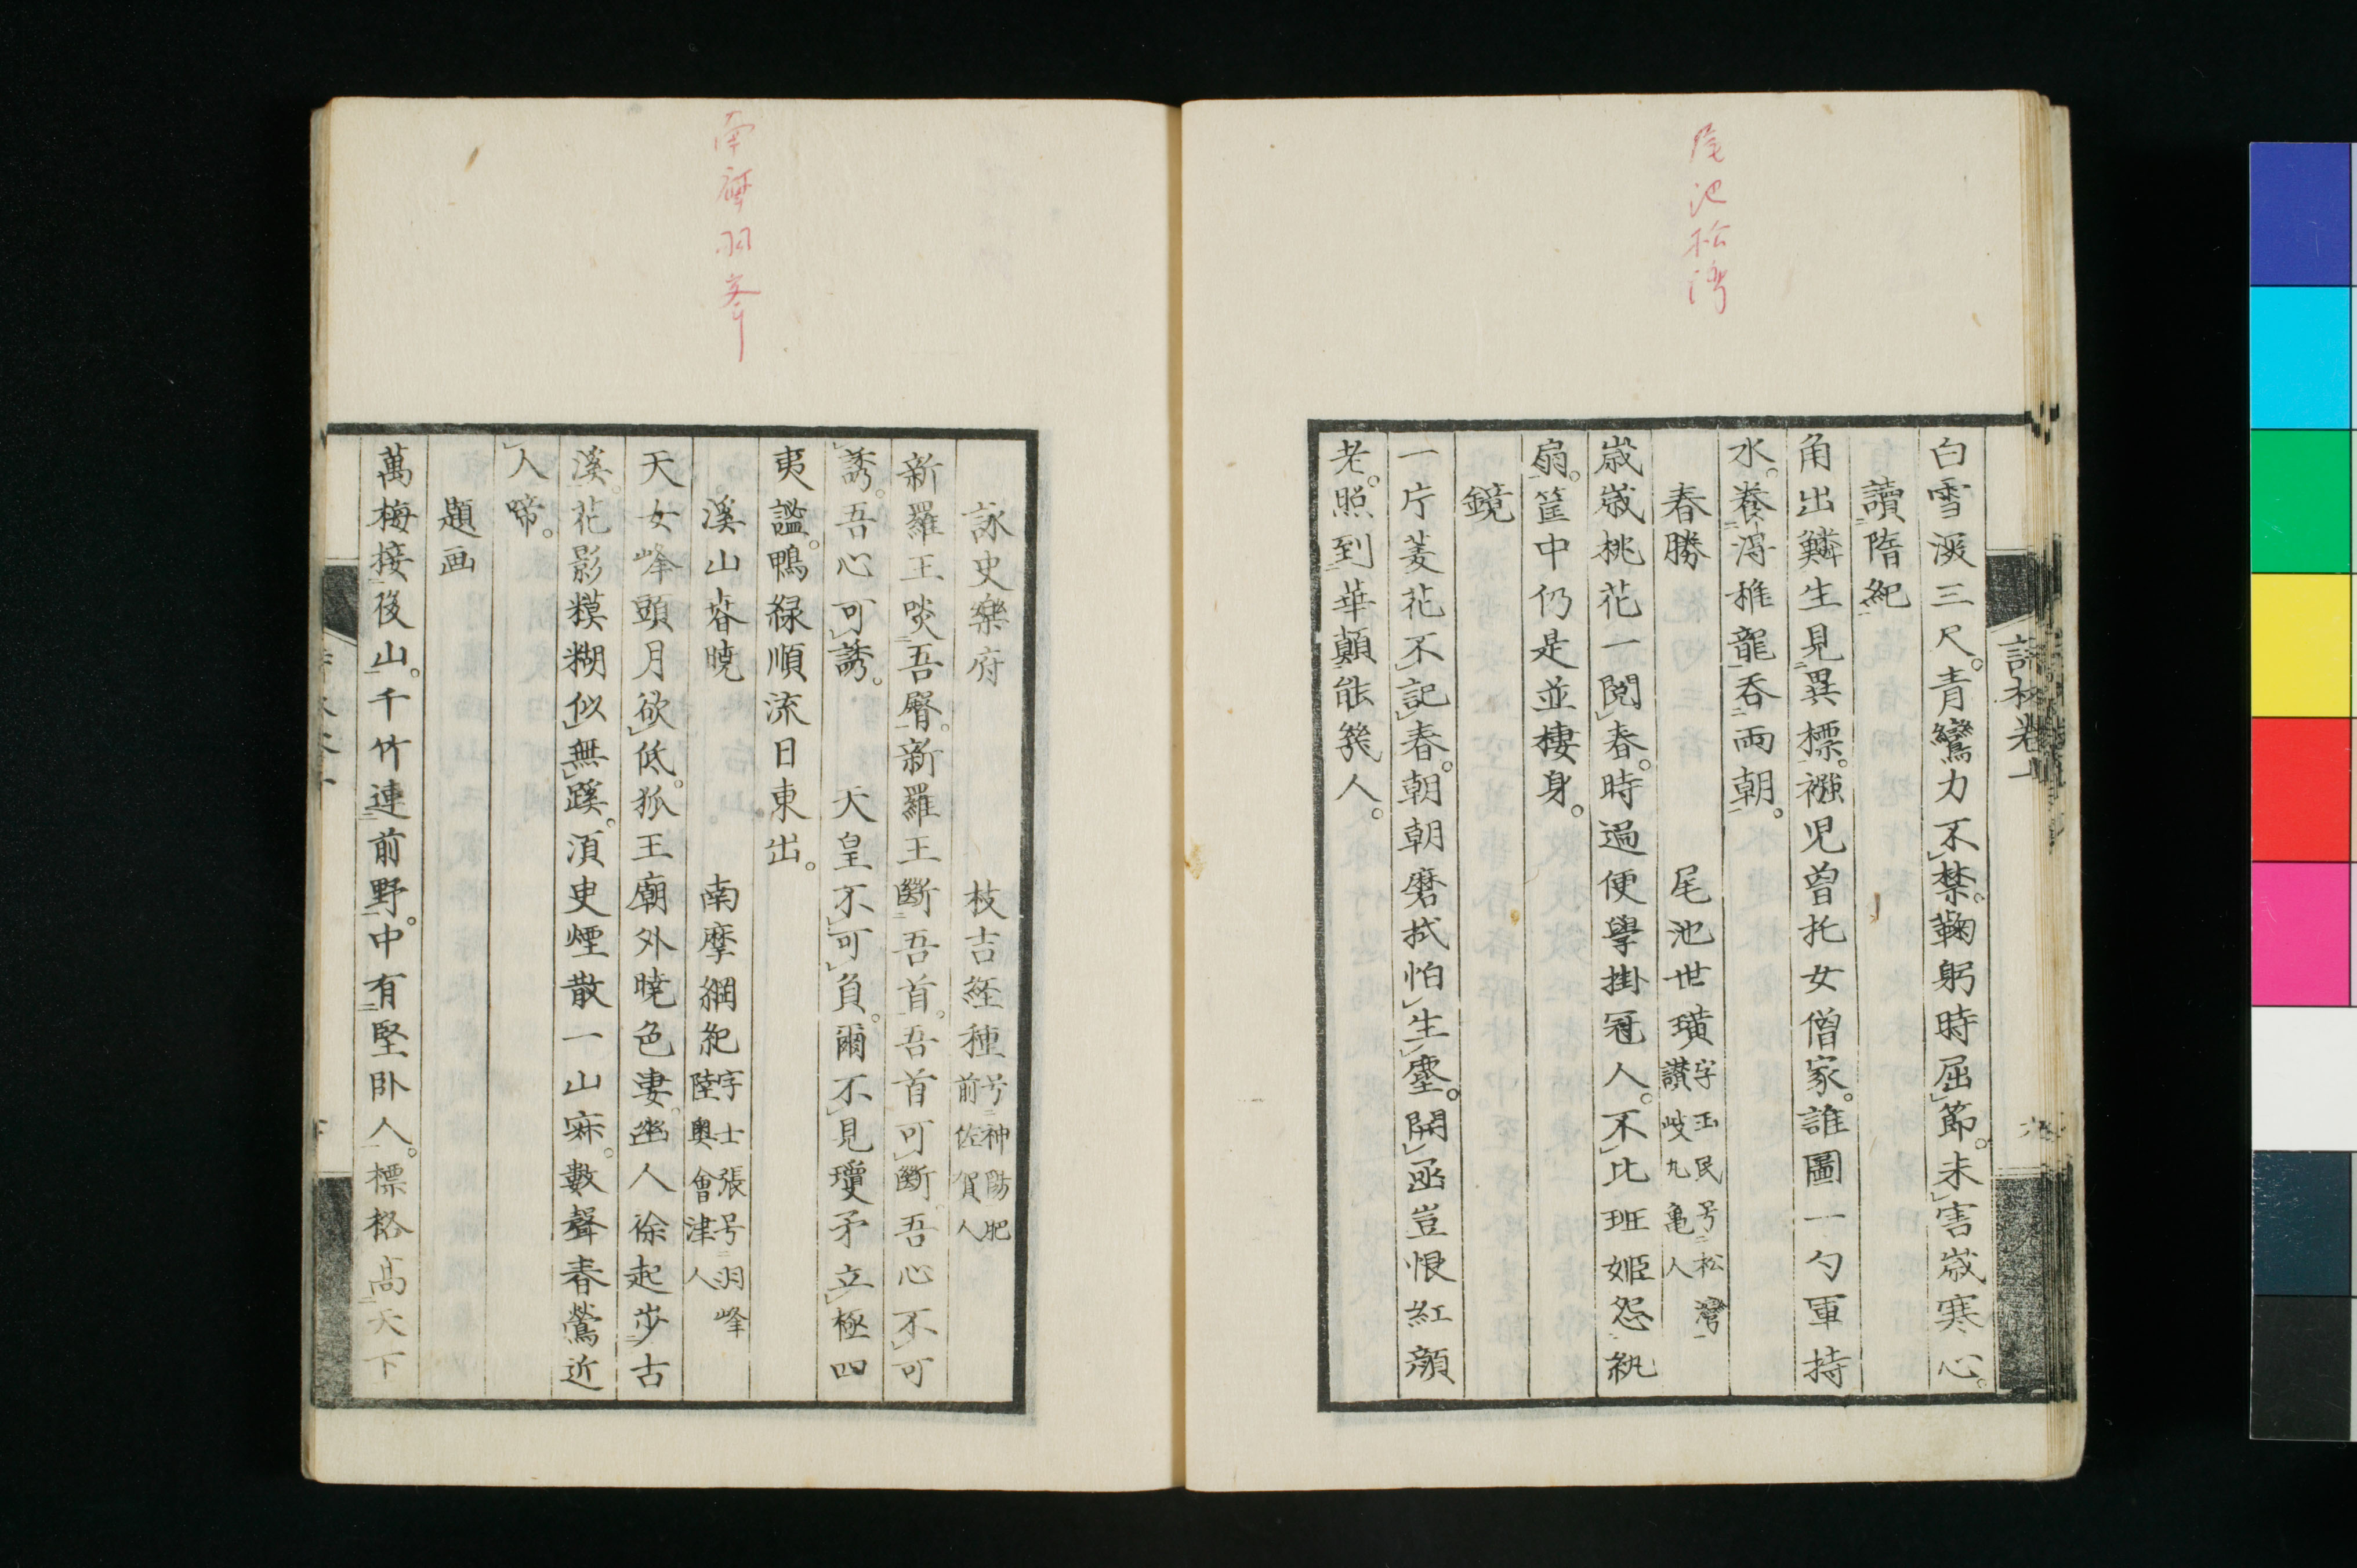 尾池松湾
白雪深三尺。青鸞力不禁。鞠躬時屈節。未害歳寒心。
讀隋紀
角出鱗生見異標。襁児曽托女僧家。誰圖一勺軍持
水。養得推龍呑両朝。
春勝　尾池世璜字玉民号松灣
讃岐九亀人
歳歳桃花一閲春。時過便學掛冠人。不比班姫怨紈
扇。筐中仍是並棲身。
鏡
一片菱花不記春。朝朝磨拭怕生塵。開函豈恨紅顔
老。照到華顛能幾人。
南摩羽峯
詠史樂府　枝吉経種号神陽肥
前佐賀人
新羅王啖吾臀。新羅王斷吾首。吾首可斷。吾心不可
誘。吾心可誘。　天皇不可負。爾不見瓊矛立極四
夷謐。鴨緑順流日東出。
溪山春曉　南摩綱紀字士張号羽峰
陸奥會津人
天女峰頭月欲低。狐王廟外曉色凄。幽人徐起歩古
溪。花影糢糊似無蹊。湏臾煙散一山寂。數聲春鶯近
人啼。
題画
萬梅接後山。千竹連前野。中有堅卧人。標格高天下